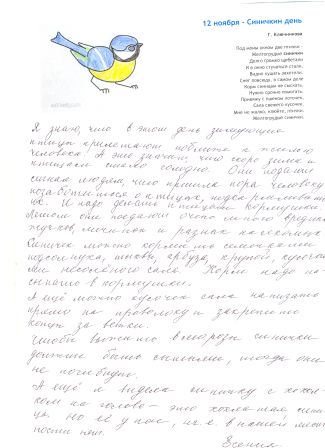 12 ноября - Синичкин день
Г. Ключникова
Под моим окном две птички -
Желтогрудые синички
Долго громко щебетали
И в окно стучаться стали.
Видно кушать захотели.
Снег повсюду, в самом деле
Корм синицам не сыскать,
Нужно срочно помогать.
Принесу я пшенки горсточек,
Сала свежего кусочек.
Мне не жалко, клюйте, птички
Желтогрудые синички.
Я знаю, что в этот день зимующие
птицы прилетают поближе к жилью
человека. А это значит, что скоро зима и
птицам голодно. Они подали
сигнал людям, что пришла пора человеку
позаботиться о птицах, подкармливать
их. И надо делать птицам кормушки.
Летом они поедают очень много вредных
жучков, личинок и разных насекомых
Синичек можно кормить семечками
подсолнуха, тыквы, арбуза, крупой, кусочка
ми несолёного сала. Корм надо на-
сыпать в кормушки.
А ещё можно кусочек сала нанизать
прямо на проволоку и закрепить
концы за ветки.
Чтобы выжить в морозы синички
должны быть сытыми, тогда они
не погибнут.
А ещё я видела синичку с хохол-
ком на голове - это хохлатая сини
ца. Но её у нас, их в нашей мест
ности нет.
Есения